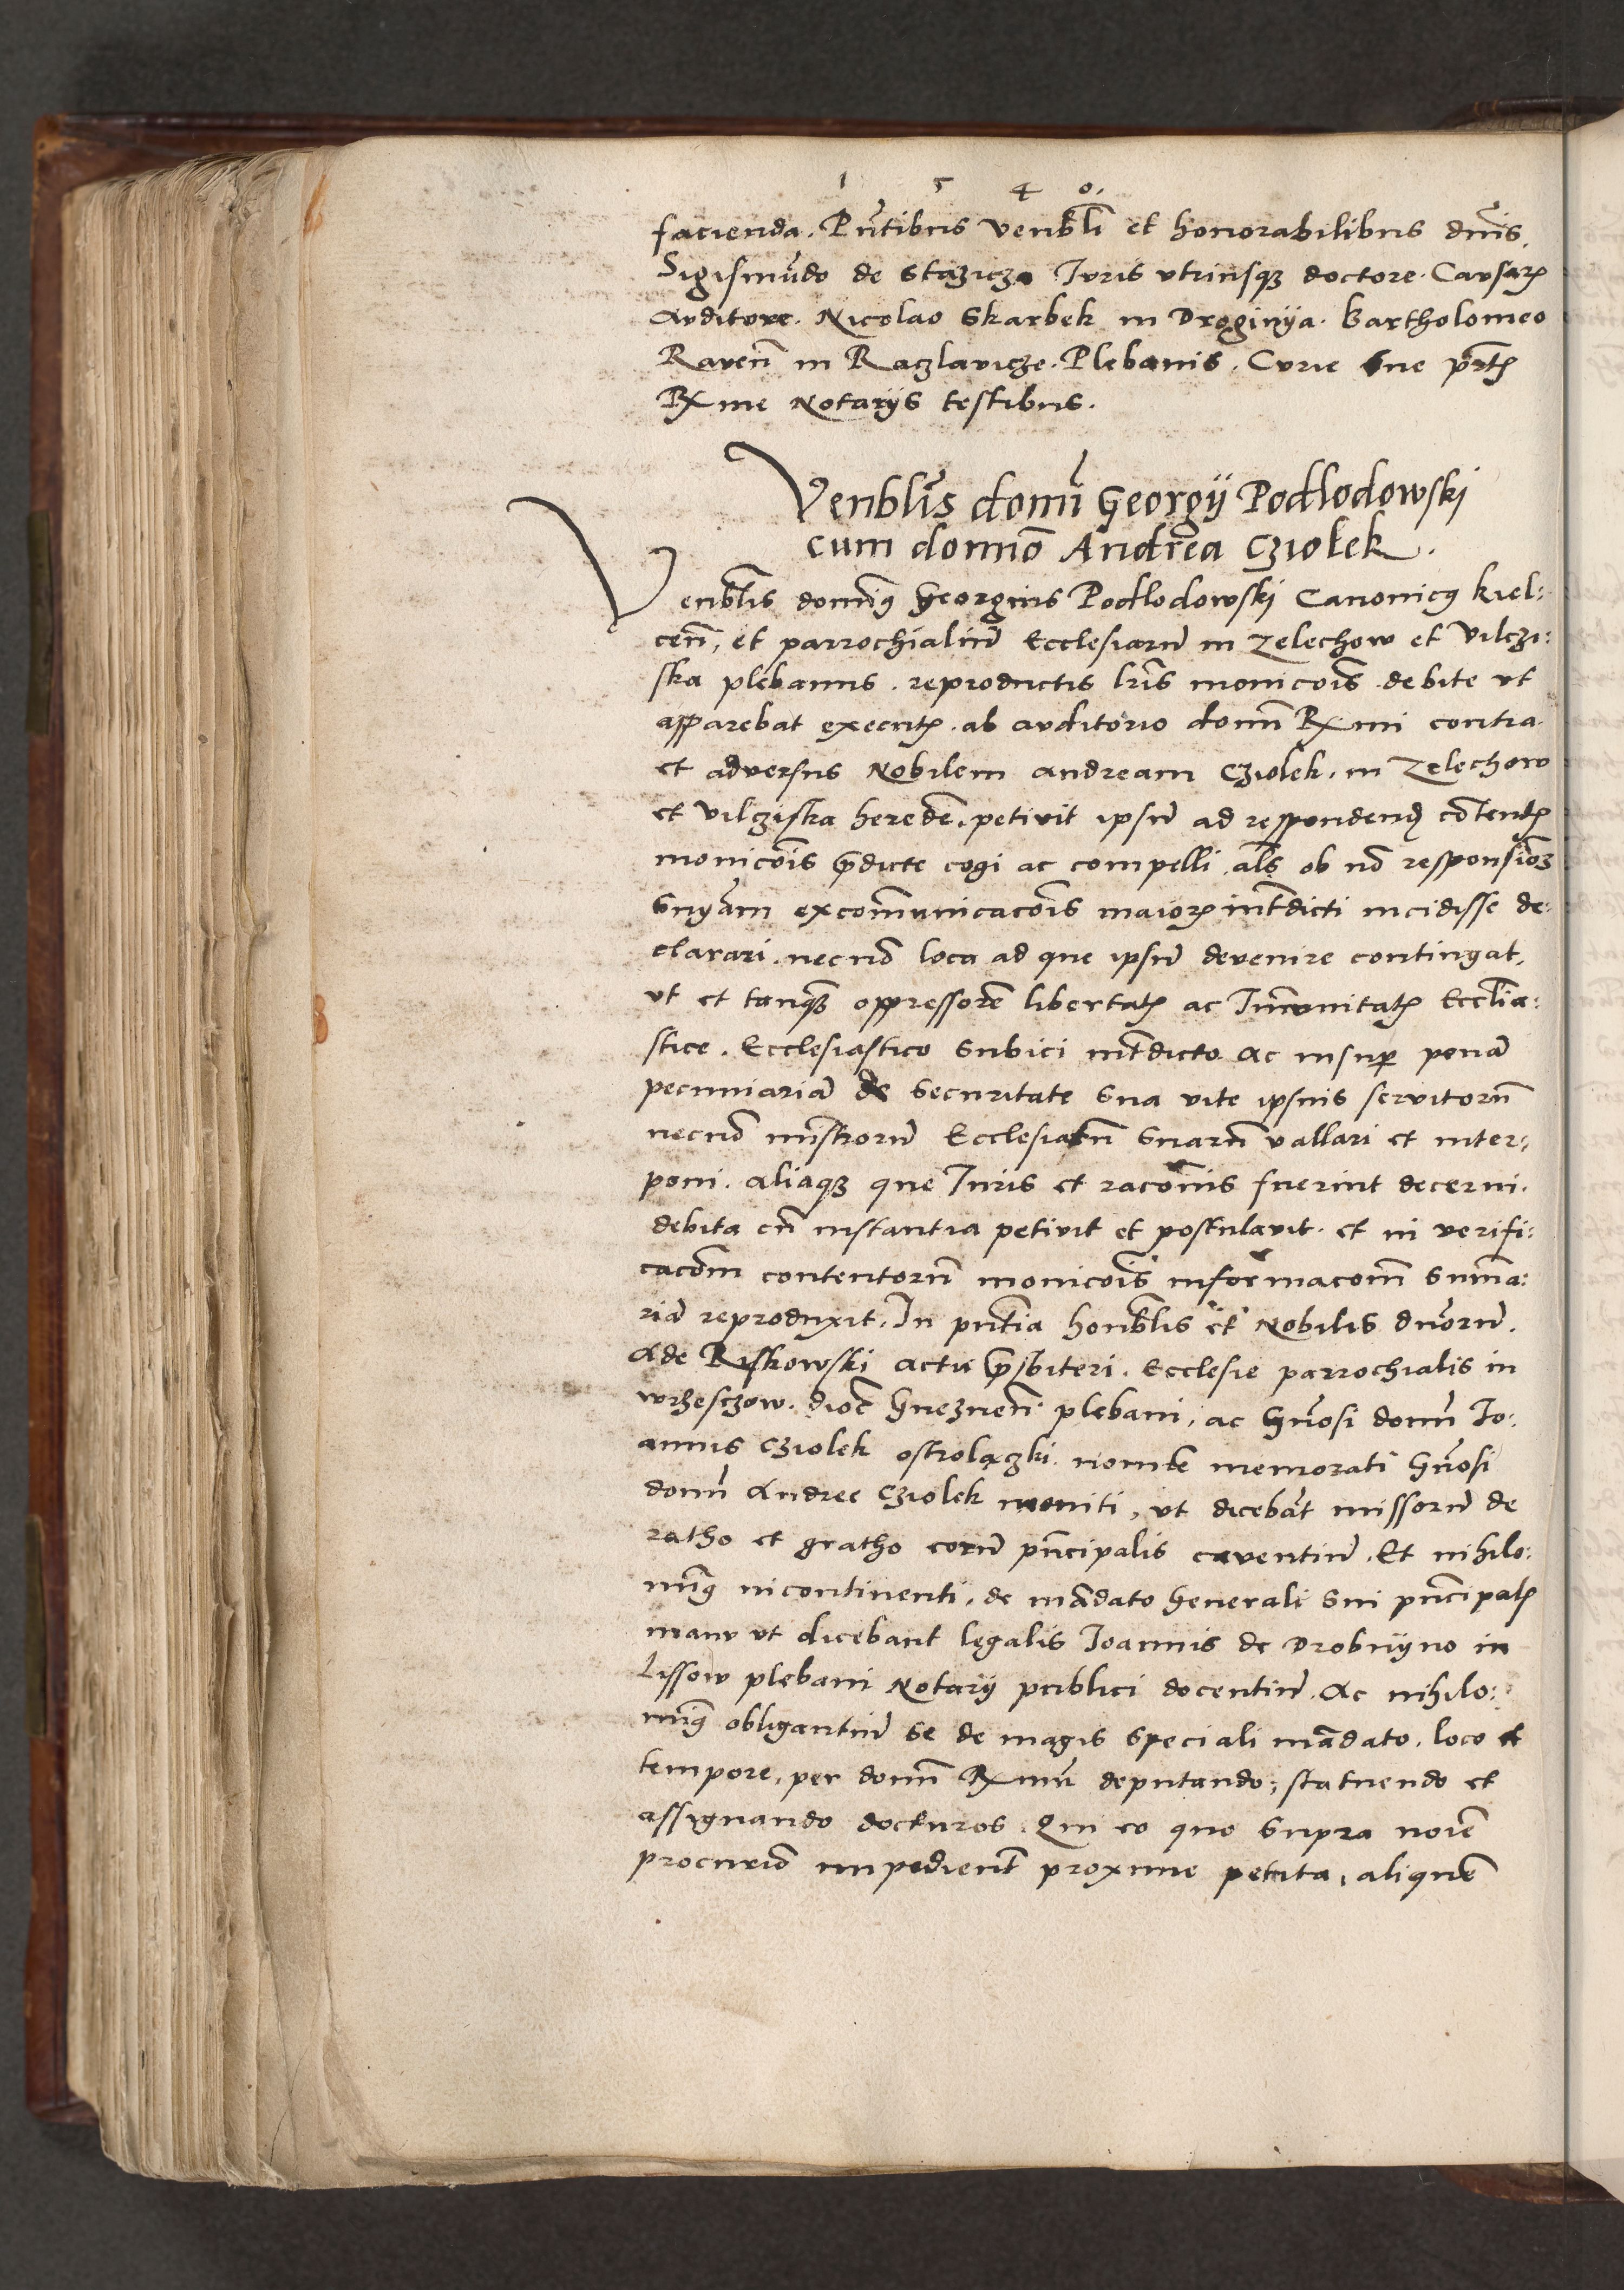 1 5 4 0.
facienda. Pn̄tibus venbl̄i et honorabilibus dn̄is.
Sigismūdo de Stazicza Iuris vtriusqꝫ doctore. Causarꝝ
Auditore. Nicolao Skarbek in Droginÿa. Bartholomeo
Raven̄ in Raczlavicze. Plebanis. Curie Sue p̄rtꝭ
Rx̄me Notarÿs testibus.
Venblīs domī Georgÿ Podlodowski
cum domīo Andrea Cziolek.
Venbl̄is domīꝰ Georgius Podlodowski Canonicꝰ kiel:
cen̄, et parrochialiū Ecclesiarū in Zelechow et Vilczi:
ska plebanus. reproductis lr̄is monicōis debite vt
apparebat executꝭ. ab auditorio domī Rx̄mi contra
et adversus Nobilem andream Cziolek. in Zelechow
et vilcziska heredē. petivit ipsū ad respondendꝫ cōtentꝭ
monicōis p̄dicte cogi ac compelli al̄s ob nō responsiōꝫ
Snÿam excommunicacōis maiorꝭ int̄dicti incidisse de:
clarari. necnō loca ad que ipsū devenire contingat,
vt et tanqꝫ oppressorē libertatꝭ ac Im̄unitatꝭ Eccl̄ia:
stice. Ecclesiastico Subici int̄dicto. Ac insuꝑ penā
pecuniariā de Securitate Sua vite ipsius servitorū
necnō mi̅strorū Ecclesiarū Suarū vallari et inter:
poni. aliaqꝫ que Iuris et racōnis fuerint decerni.
debita cū instantia petivit et postulavit. et in verifi:
cacōm contentorū monicōis informacōm Summa:
riā reproduxit. In pn̄tia honbl̄is et Nobilis dn̄orū.
Ade Riskowski actu P̄sbiteri. Ecclesie parrochialis in
wrzeszow. dioc̄ Gneznen̄ plebani, ac Gn̄osi domī Io:
annis Cziolek ostrolączki. nomīe memorati Gn̄osi
domī Andree Cziolek moniti, vt dicebāt missorū de
ratho et gratho eorū pn̄cipalis caventiū. Et nihilo:
minꝰ incontinenti. de mādato Generali Sui pn̄cipalꝭ
manu vt dicebant legalis Ioannis de Drobnÿno in
Lissow plebani Notarÿ publici docentiū. Ac nihilo:
minꝰ obligantiū se de magis Speciali mādato. loco et
tempore. per domī Rx̄mū deputando; statuendo et
assignando docturos. Qui eo quo Supra noīe
procurio impedient proxime petita, aliquē